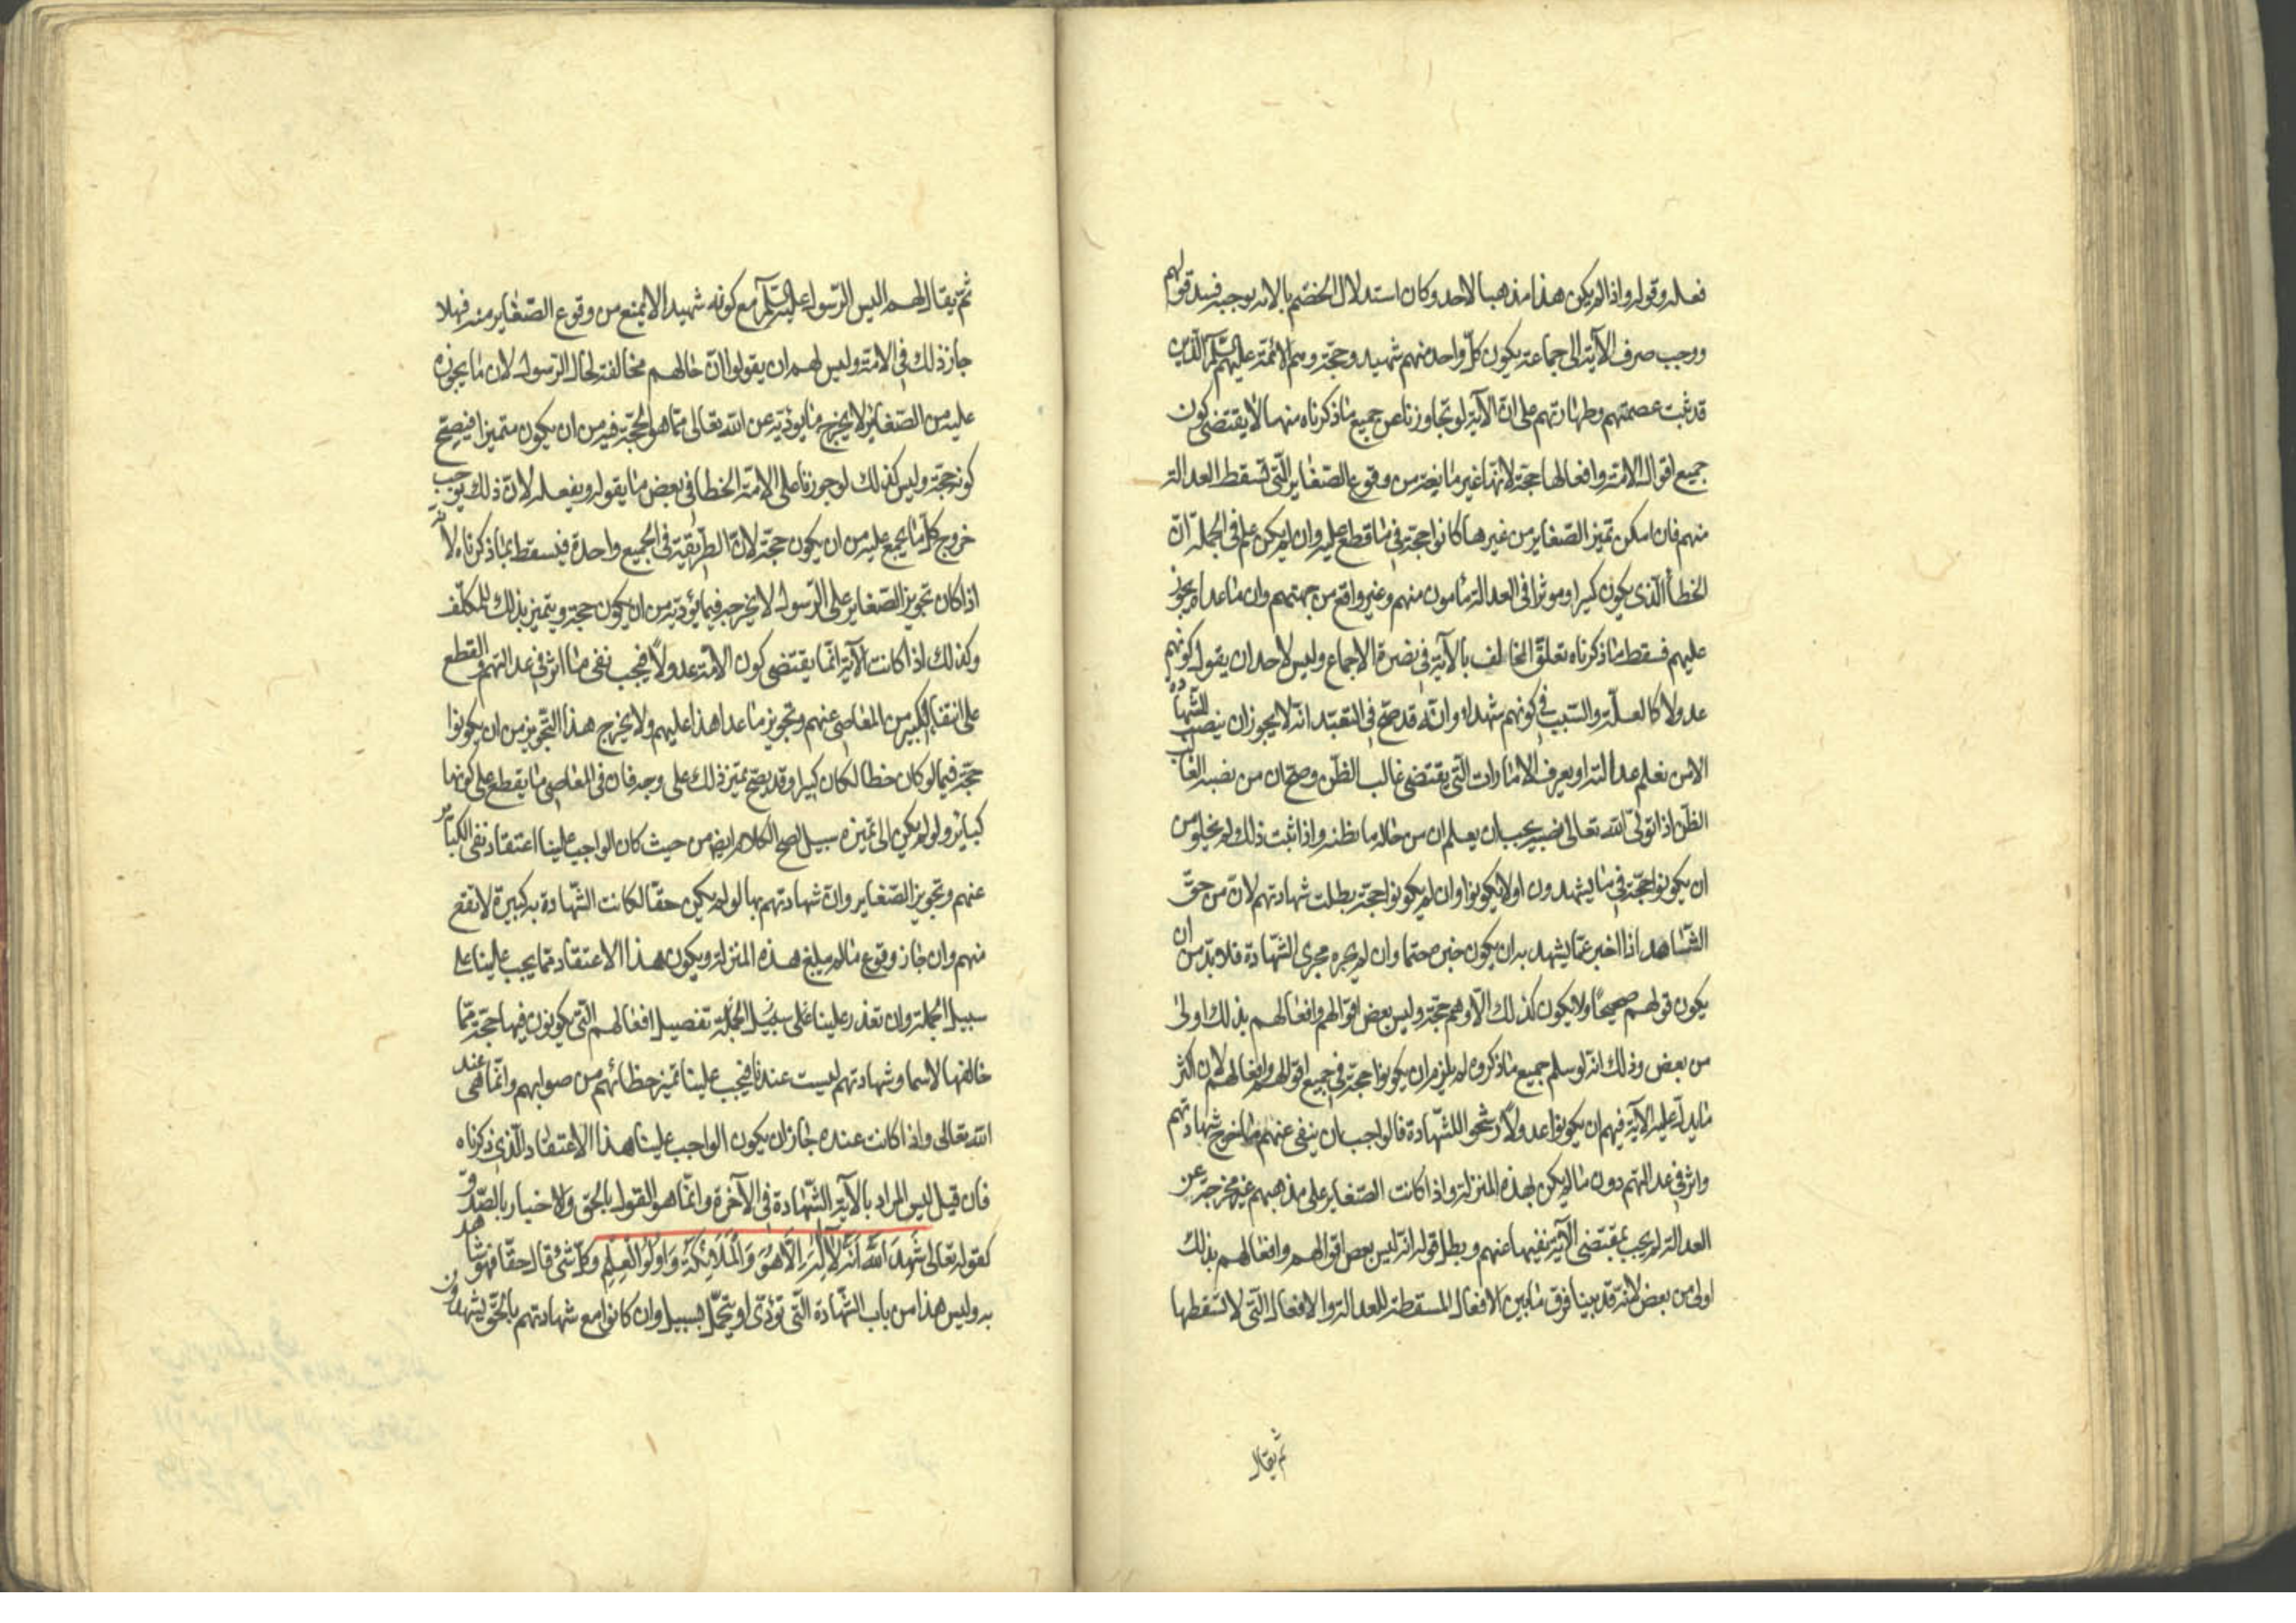 فعله وقوله واذا لم يكن هذا مذهبا لاحد وكان استدلال الخصم بالآية يوجبه فسد قولهم
ووجب صرف الآية الى جماعة يكون كلّ واحد منهم شهيد وحجّة وهم الائمة عليهم السّلم الّذين
قد ثبت عصمتهم وطهارتهم على انّ الآية لو تجاوزنا عن جميع ما ذكرناه منها لا يقتضى كون
جميع اقوال الامّة وافعالها حجّة لانّها غير مانعة من وقوع الصّغاير الّتى لا تسقط العدالة
منهم فان امكن تميز الصّغاير من غيرها كانوا حجّة فى ما قطع عليه وان لم يكن علم فى الجملة انّ
الخطأ الّذى يكون كبيرا وموثرا فى العدالة مأمون منهم وغير واقع من جهتهم وان ما عداه يجوز
عليهم فسقط ما ذكرناه تعلّق المخالف بالآية فى نصرة الاجماع وليس لاحد ان يقول كونهم
عدولا كالعلّة والسّبب فى كونهم شهداء وانّه قد صحّ فى التعبّد انّه لا يجوز ان ينصب للشّهادة
الا من نعلم عدالته او يعرف الامارات الّتى يقتضى غالب الظنّ وصحّ ان من نصبه الغالب
الظنّ اذا تولّى الله تعالى نصبه يجب ان يعلم ان من حاله ما نظنه واذا ثبت ذلك لم يخلو من
ان يكونوا حجّة فى ما يشهدون او لا يكونوا وان لم يكونوا حجّة بطلت شهادتهم لانّ من حقّ
الشّاهد اذا اخبر عمّا يشهد به ان يكون خبره حقا وان لم يجره مجرى الشّهادة فلا بدّ من ان
يكون قولهم صحيحًا ولا يكون كذلك الّا وهم حجّة وليس بعض اقوالهم وافعالهم بذلك اولى
من بعض وذلك انّه لو سلم جميع ما ذكروه لم يلزم ان يكونوا حجّة فى جميع اقوالهم وافعالهم لان اكثر
ما يدلّ عليه الآية فيهم ان يكونوا عدولاً رشحوا للشّهادة فالواجب ان ينفى عنهم ما اخرج شهادتهم
واثر فى عدالتهم دون ما لم يكن بهذه المنزلة واذا كانت الصّغاير على مذهبهم غير مخرجة عن
العدالة لم يجب بمقتضى الآية نفيها عنهم وبطل قوله انّه ليس بعض اقوالهم وافعالهم بذلك
اولى من بعض لانّه قد بينا فرق ما بين الافعال المسقطة للعدالة والافعال الّتى لا تسقطها
ثم يقال
ثمّ يقال لهم اليس الرّسول عليه السّلم مع كونه شهيدا لا يمنع من وقوع الصّغاير منه فهلا
جاز ذلك فى الامّة وليس لهم ان يقولوا انّ حالهم مخالفة لحال الرّسول لان ما يجوزه
عليه من الصّغاير لا يخرج ما يوديه عن الله تعالى ممّا هو الحجّة فيه من ان يكون متميزا فيصحّ
كونه حجّة وليس كذلك لو جوزنا على الامّة الخطا فى بعض ما يقوله ويفعله لانّ ذلك يوجب
خروج كلّ ما يجمع عليه من ان يكون حجّة لانّ الطّريقة فى الجميع واحدة فيسقط بما ذكرناه لانه
اذا كان تجويز الصّغاير على الرّسول لا يخرجه فيما يؤديه من ان يكون حجة ويتميز بذلك للمكلّف
وكذلك اذا كانت الآية انّما يقتضى كون الامّة عدولاً فيجب نفى ما اثر فى عدالتهم والقطع
على انتفاء الكبير من المعاصى عنهم وتجويز ما عدا هذا عليهم ولا يخرج هذا التّجويز من ان يكونوا
حجّة فيما لو كان خطا لكان كبيرا وقد يصحّ تميز ذلك على وجه فان فى المعاصى ما يقطع على كونها
كباير ولو لم يكن الى تميزه سبيل لصحّ الكلام ايضا من حيث كان الواجب علينا اعتقاد نفى الكباير
عنهم وتجويز الصّغاير وانّ شهادتهم بما لو لم يكن حقّا لكانت الشّهادة به كبيرة لا تقع
منهم وان جاز وقوع ما لم يبلغ هذه المنزلة ويكون هذا الاعتقاد ممّا يجب علينا على
سبيل الجملة وان تعذر علينا على سبيل الجملة تفصيل افعالهم الّتى يكونون فيها حجّة ممّا
خالفها لاسما وشهادتهم ليست عندنا فيجب علينا تميز خطائهم من صوابهم وانّما هى عند
الله تعالى واذا كانت عنده جاز ان يكون الواجب علينا هذا الاعتقاد الّذى ذكرناه
فان قيل ليس المراد بالآية الشّهادة فى الآخرة وانّما هو القول بالحقّ والاخبار بالصّدق
كقوله تعالى شَهِدَ اللّهُ اَنَّهُ لاَ اِلَهَ اِلَّا هُوَ وَالْمَلَائِكَةُ وَاوُلُوا الْعِلْمِ وكلّ شئ قال حقّا فهو شاهد
به وليس هذا من باب الشّهادة الّتى تؤدّى او يتحمّل بسبيل وان كانوا مع شهادتهم بالحقّ يشهدون